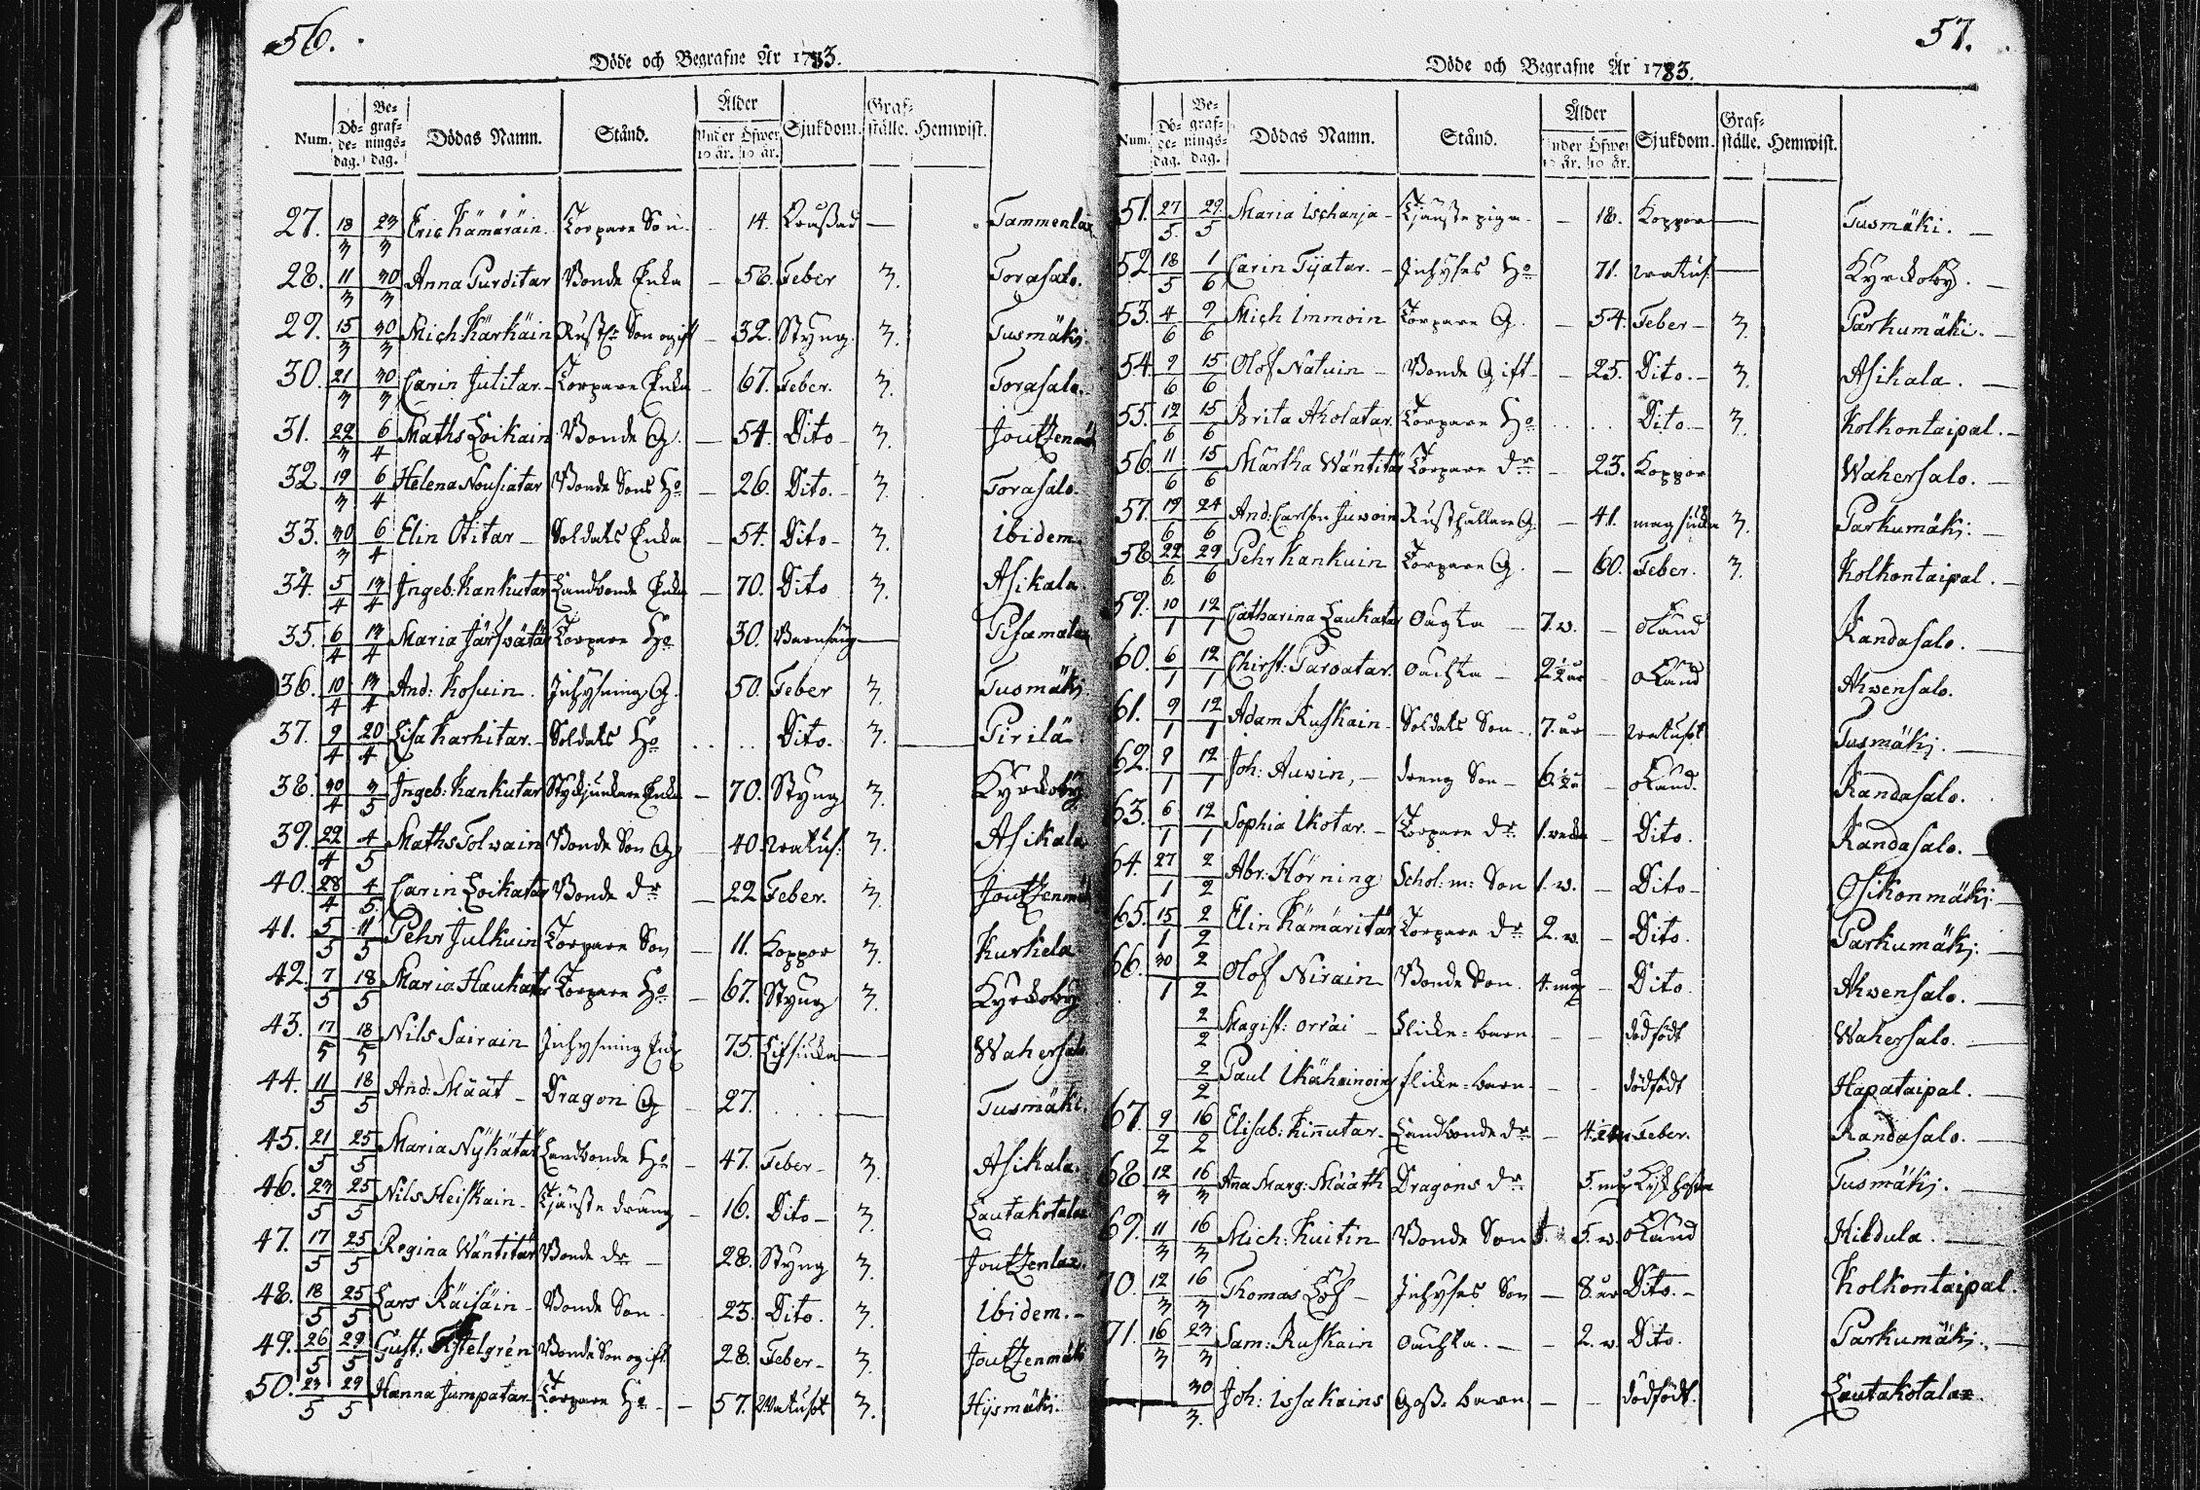 56.
Döde och Begrafne År 1783.
Num. Dö-de-dag. Be-graf-nings-dag. Dödas Namn. Stånd. Ålder Under 10 år. Öfwer 10 år. Sjukdom. Graf-ställe. Hemwist.
27. 18/3 23/3 Eric Kämäräin. Torpare Son 14. Tammenlax
28. 11/3 30/3 Anna Purditar Bonde Enka – 56. Feber 3. Torasalo.
29. 15/3 30/3 Mich Kärkäin Son ogift – 32. Styng. 3. Tusmäki
30. 21/3 30/3 Carin Julitar. Torpare Enka – 67. Feber. 3. Torasalo.
31. 22/3 6/4 Maths Loikain Bonde G. – 54. Dito – 3.
32. 19/3 6/4 Helena Nousiatar Bonde Sons Ho – 26. Dito. – 3. Torasalo.
33. 30/3 6/4 Elin Otitar – Soldats Enka – 54. Dito – 3. Ibidem.
34. 5/4 13/4 Ingeb: Kankutar Landbonde Enka – 70. Dito 3. Asikala.
35. 6/4 13/4 Maria Torpare Ho 30. Barnsäng –
36. 10/4 13/4 And: Kosuin. Inhysning G. 50. Feber 3. Tusmäki
37. 9/4 20/4 Lisa Karhitar. – Soldats Ho . . . . Dito. 3. Pirilä
38. 30/4 3/5 Ingeb: Kankutar Enka – 70. Styng 3. Kyrckoby
39. 22/4 4/5 Maths Tolwain Bonde Son G – 40. 3. Asikala
40. 28/4 4/5 Carin Loikatar Bonde dr – 22 Feber. 3.
41. 5/5 11/5 Pehr Julkuin Torpare Son – 11. Koppor 3. Kurkela
42. 7/5 18/5 Maria Haukatar Torpare Ho – 67. Styng 3. Kyrckoby
43. 17/5 18/5 Nils Sairain Inhysning 75. – Wahersalo
44. 11/5 18/5 And: Määt – Dragon G – 27. . . . – Tusmäki.
45. 21/5 25/5 Maria Nykätar Landbonde Ho – 47. Feber – 3. Asikala.
46. 23/5 25/5 Nils Heiskain – Tjänste dräng – 16. Dito – 3. Lautakotalax
47. 17/5 25/5 Regina Wäntitär Bonde dr – 28. Styng 3. Joutzenlax.
48. 18/5 25/5 Lars Räisäin – Bonde Son – 23. Dito. 3. Ibidem. –
49. 26/5 29/5 Gust: Bonde Son ogift 28. Feber – 3. Joutzenmäki
50. 23/5 29/5 Hanna Jumpatar Torpare Ho – 57. Watusot 3.
57.
Döde och Begrafne År 1783.
Num. Dö-de-dag. Be-graf-nings-dag. Dödas Namn. Stånd. Ålder Under 10 år. Öfwer 10 år. Sjukdom. Graf-ställe. Hemwist.
51. 27/5 29/5 Maria Ischanja – Tjänste piga – – 18. Koppor – Tusmäki. –
52 18/5 1/6 Carin Tijatar. – Inhyses Ho 71. – Kyrckoby. –
53. 4/6 9/6 Mich Immoin Torpare G. – 54. Feber – 3. Parkumäki. –
54. 9/6 15/6 Olof Natuin – Bonde Gift – – 25. Dito. – 3. Asikala. –
55. 12/6 15/6 Brita Akolatar Torpare Ho . . . . Dito. – 3. Kolkontaipal. –
56. 11/6 15/6 Märtha Wäntitär Torpare dr – 23. Koppor Wahersalo. –
57. 19/6 24/6 And: Carlson Juwoin Rusthållare G. – 41. 3. Parkumäki. –
58. 22/6 29/6 Pehr Kankuin Torpare G. – 60. Feber. 3. Kolkontaipal. –
59. 10/1 12/1 Catharina Laukatar Oägta – 7. w. – okänd Randasalo. –
60. 6/1 12/1 Christ: Parvatar. – 2 1/2 år – okänd Ahvensalo.
61. 9/1 12/1 Adam Ruskain – Soldats Son – 7. år – watusot Tusmäki. –
62. 9/1 12/1 Joh: Auwin, – dreng Son – – okänd. Randasalo.
63. 6/1 12/1 Sophia Ikotar. – Torpare dr. 1. wecka – Dito. Randasalo. –
64. 27/1 2/2 Abr: Hörning Schol: m: Son 1. w. – Dito – Osikonmäki –
65. 15/1 2/2 Elin Kämäritär Torpare dr 2. w. – Dito. Parkumäki. –
66. 30/1 2/2 Olof Nirain Bonde Son. – Dito. Ahvensalo. –
2/2 Magist: Orrai – flicke-barn – – dödfödt Wahersalo. –
2/2 Paul flicke-barn – – dödfödt Hapataipal. –
67. 9/2 16/2 Elisab: Kinnutar. – Landbonde dr – Feber. Randasalo. –
68 12/3 16/3 Ana Marg: Määth Dragons dr Tusmäki. –
69. 11/3 16/3 Mich: Kuitin Bonde Son 5. w. okänd –
70. 12/3 16/3 Thomas Löf – Inhyses Son – 8. år Dito. – Kolkontaipal.
71. 16/3 23/3 Sam: Ruskain – – 2. w. Dito. Parkumäki. –
30/3. Joh: Issakains Goße barn – – dödfödt. Lautakotalax.